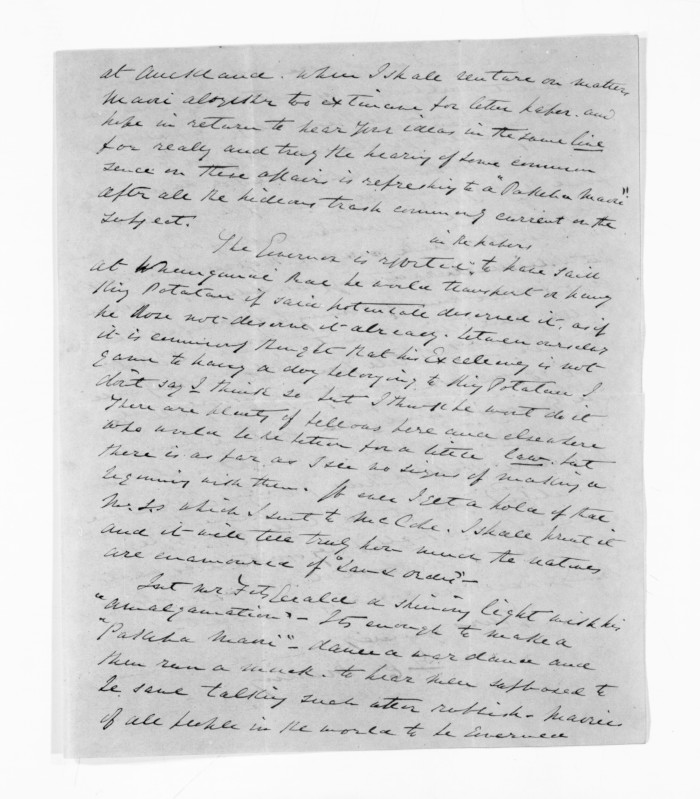 at Auckland. when I shall venture on matters
Maori altogether too extensive for letter paper. and
hope in return to hear your ideas in the same line
for really and truly the hearing of some common
sence on these affairs is refreshing to a "Pakeha Maori"
after all the hideous trash commonly current on the
subject.
in the papers
The Governor is reported to have said
at Whanganui that he would transport or hang
King Potatau if said potentate deserved it, as if
he dose not deserve it already. between ourselves
it is commonly thought that his Excellency is not
game to hang a dog belonging to King Potatau I
dont say I think so but I think he wont do it
There are plenty of fellows here and elsewhere
who would be the better for a little law. but
there is as far as I see no signs of making a
beginning with them. If ever I get a hold of that
M.S. which I sent to McCabe. I shall print it
and it will tell truly how much the natives
are enamoured of "Law & order" -
Just Mr FitzGerald a shining light with his
"amalgamation" - Its enough to make a
"Pakeha Maori" - dance a war dance and
then run a muck. to hear men supposed to
be sane talking such utter rubbish. Maories
of all people in the world to be Governed